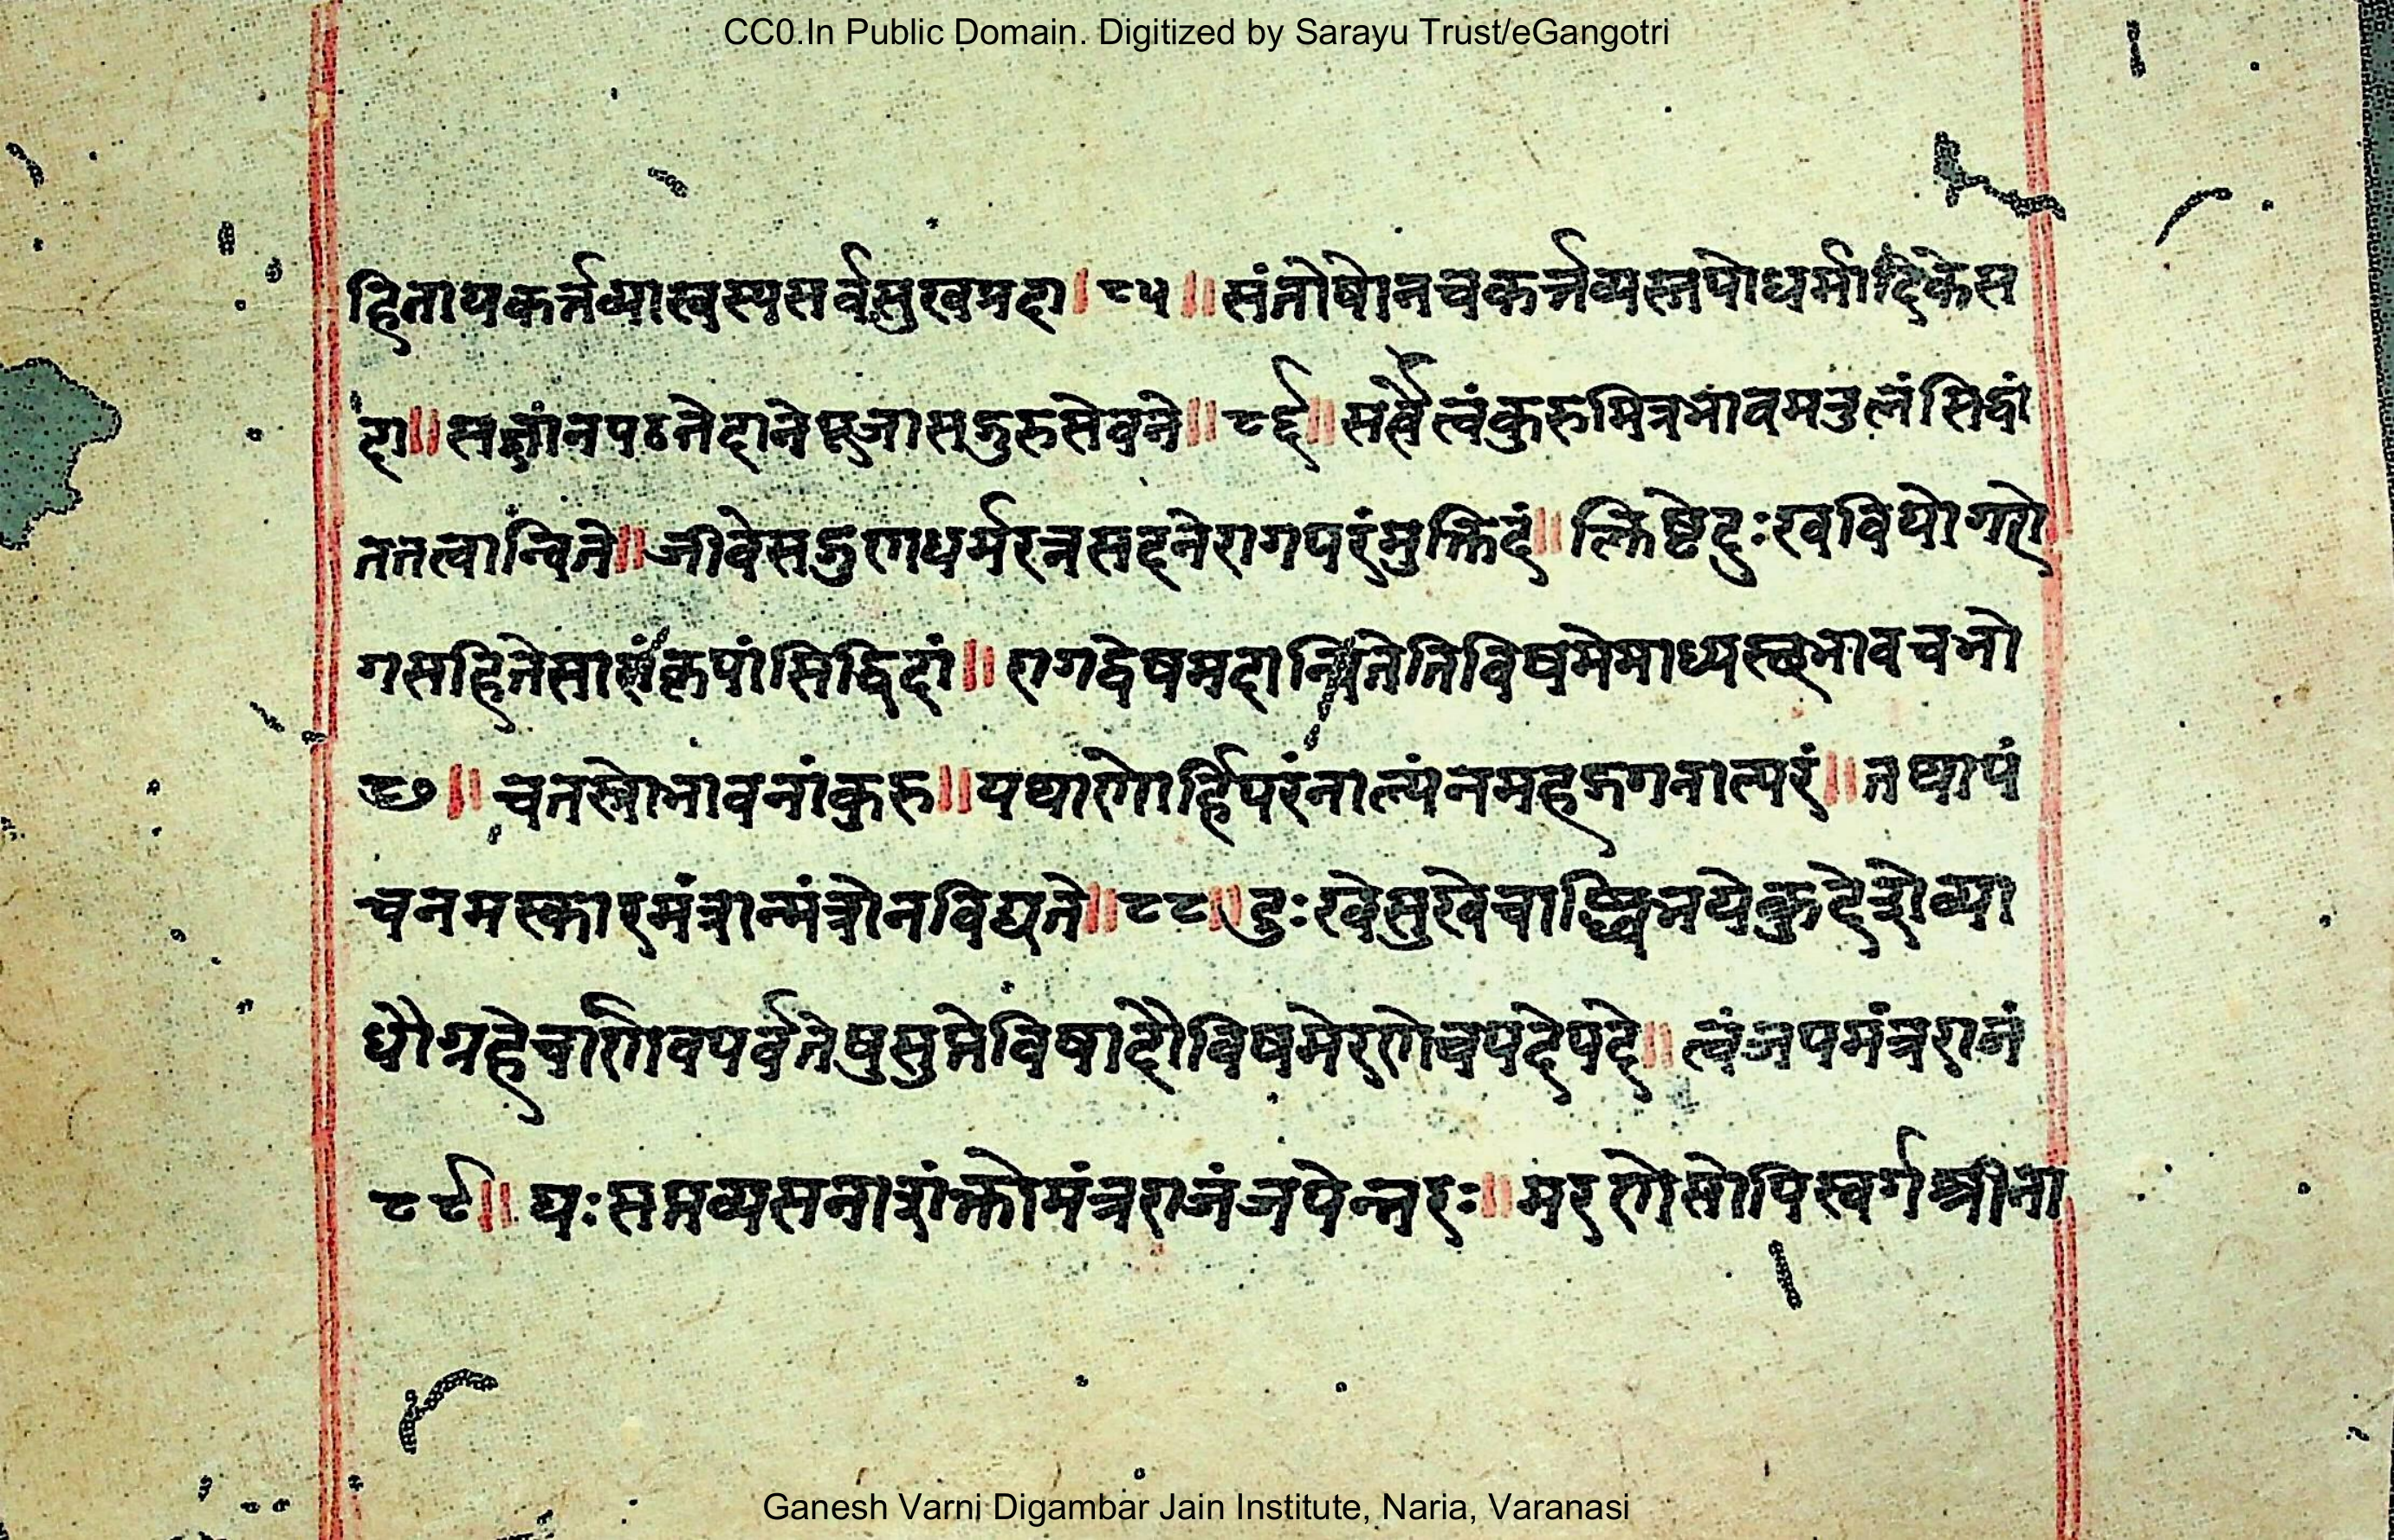 CC0.In Public Domain. Digitized by Sarayu Trust/eGangotri
हितायकर्त्तव्यास्वस्यसर्वसुखप्रदा। ८५॥ संतोषोनचकर्त्तव्यस्तपोधर्मादिकेस
दा॥ सज्ञांनपठनेदानेपूजासद्गुरुसेवने॥ ८६॥ सर्वैत्वंकुरुमित्रभावमतुलंसिद्धां
ततत्वान्विते॥ जीवेसद्गुणधर्मरत्नसदनेरागपरंमुक्तिदं॥ क्लिष्टेदुःखवियोगरो
गसहितेसारंकृपांसिद्धिदां॥ रागद्वेषमदान्वितेतिविषमेमाध्यस्छभावचभो
८७॥ चतस्त्रोभावनांकुरु॥ यथाणोर्हिपरंनाल्पंनमहद्गगनात्परं॥ तथापं
चनमस्कारमंत्रान्मंत्रोनविद्यते॥ ८८॥ दुःखेसुखेचाब्धिभयेकुदेशेव्या
धौग्रहेचार्णवपर्वतेषुसुप्तेविषादौविषमेरणेचपदेपदे॥ त्वंजपमंत्रराजं
८९॥ यःसप्तव्यसनाशंक्तोमंत्रराजंजपेन्नरः॥ मरणेसोपिस्वर्गश्रीना
Ganesh Varni Digambar Jain Institute, Naria, Varanasi